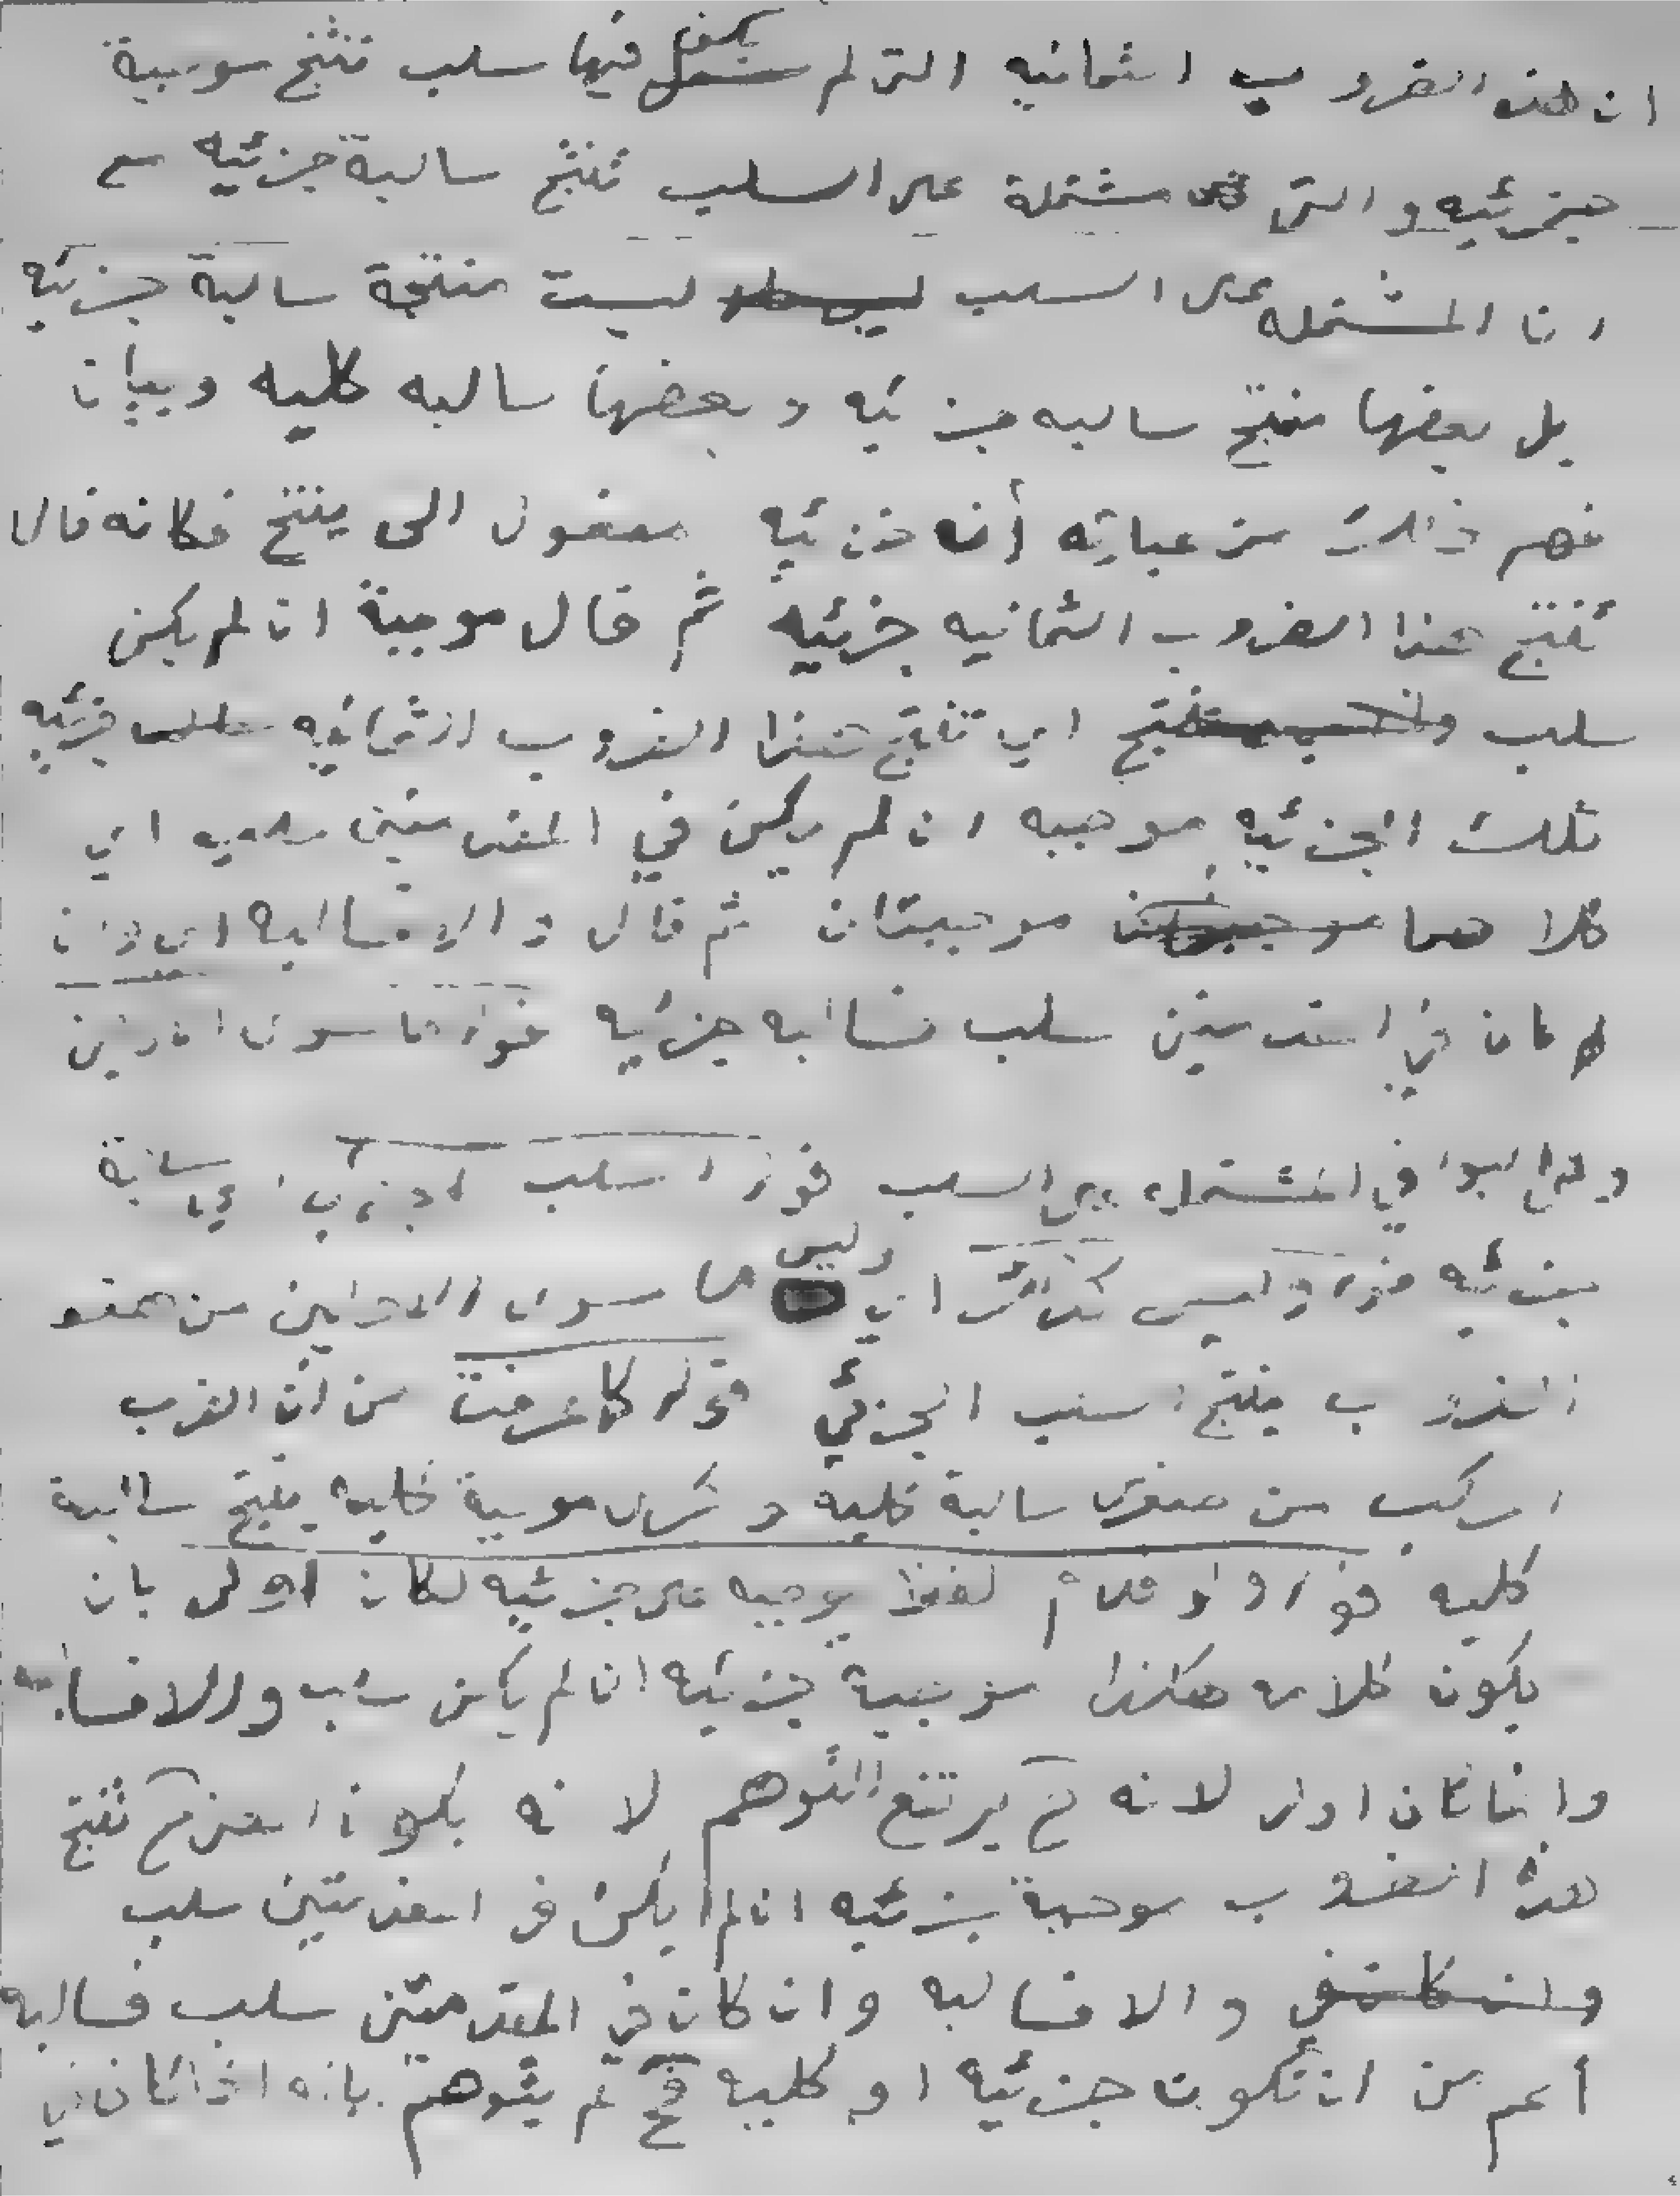 ان هذه الضروب الثمانيه التى لم يكن فيها سلب تنتج موجبة
جزئيه والتى هى مشتملة على السلب تنتج سالبة جزئيه مع
ان المشتمله على السلب ليست منتجة سالبة جزئيه
بل بعضها منتج سالبه جزئيه وبعضها سالبه كليه وبيان
فهم ذلك من عبارته أنه جزئيه مفعول الى ينتج فكانه قال
تنتج هذا الضروب الثمانيه جزئيه ثم قال موجبة ان لم يكن
سلب اي تنتج هذا الضروب الثمانيه جزئيه
تلك الجزئيه موجبه ان لم يكن في المقدمتين سلب اي
كلا هما موجبتان ثم قال والا فسالبه اى وان
كان في المقدمتين سلب فسالبه جزئيه قوله ما سوى الاولين
في المشتمل على السلب قوله السلب الجزئي اي سالبة
جزئيه قوله وليس كذلك اي وليس ما سوى الاولين من هذه
الضروب ينتج السلب الجزئي قوله كما عرفت من ان الضرب
المركب من صغرى سالبة كليه وكبرى موجبة كليه ينتج سالبة
كليه قوله ولو قدم لفظ موجبه على جزئيه لكان اولى بان
يكون كلامه هكذا موجبة جزئيه ان لم يكن سلب والا فسالبه
وانما كان اولى لانه ح يرتفع التوهم لا نه يكون المعنى ح تنتج
هذه الضروب موجبة جزئيه ان لم يكن فى المقدمتين سلب
وان كان في والا فسالبه وان كان في المقدمتين سلب فسالبه
أعم من ان تكون جزئيه او كليه فح لم يتوهم بانه اذا كان في